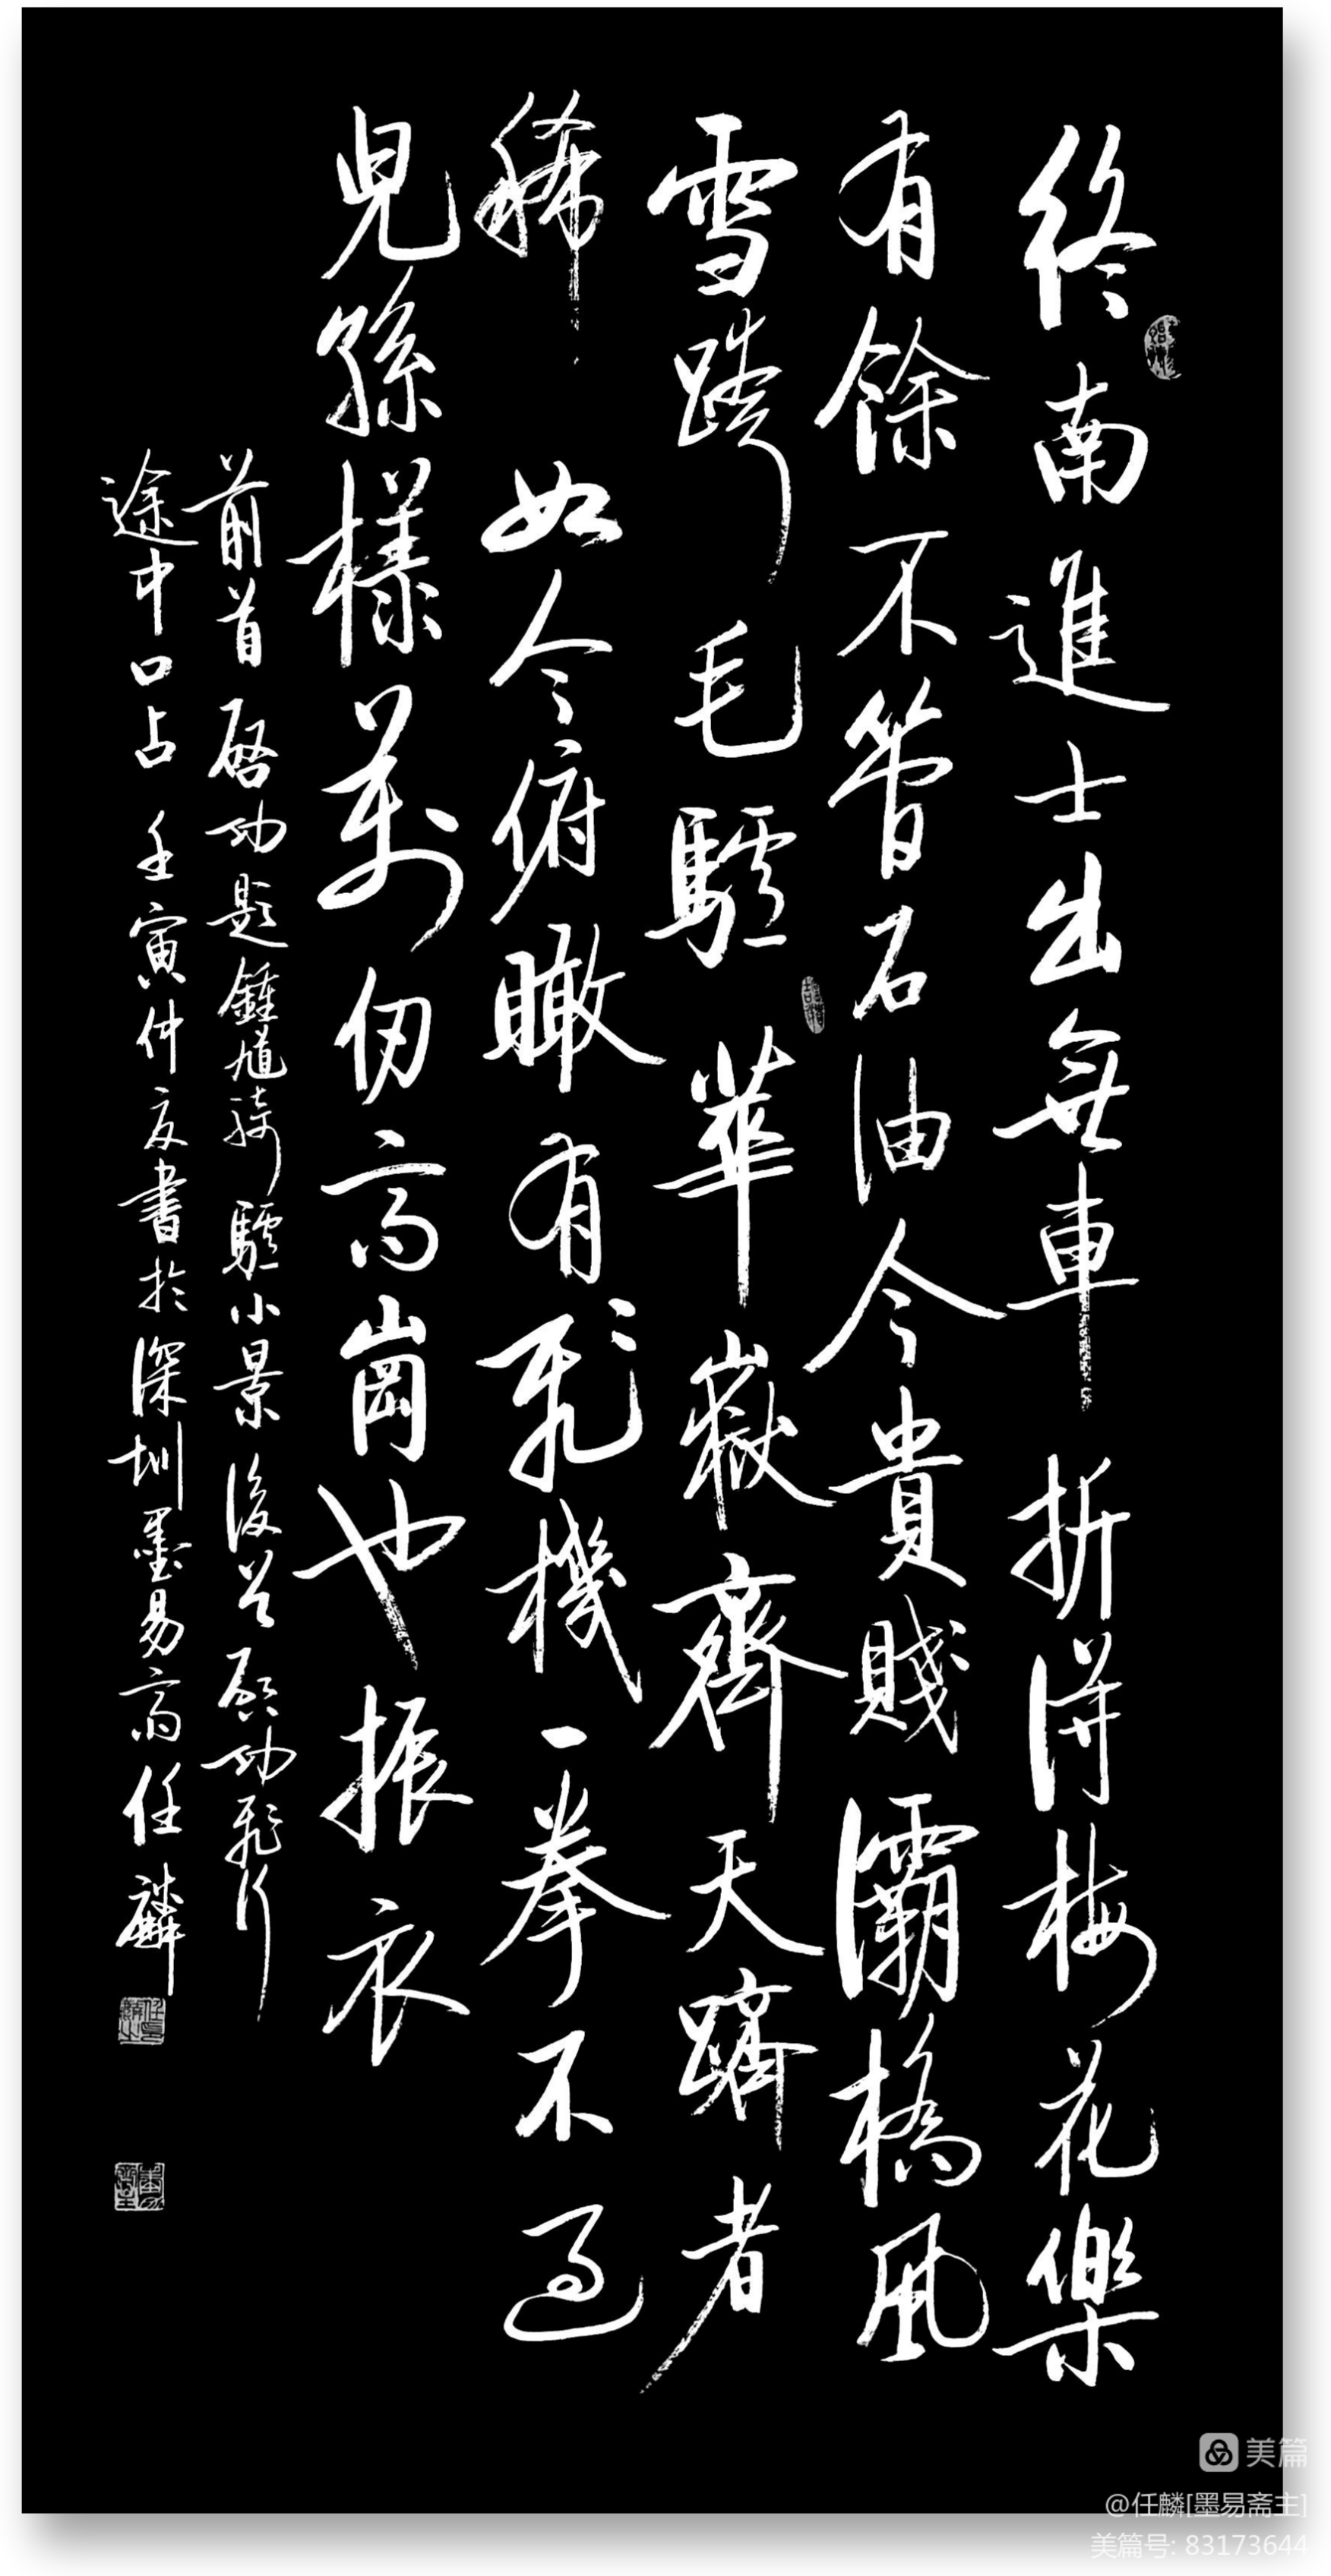 終南進士出無車折得梅花樂
有餘不管石油今貴賤灞橋風
雪跨毛驢華嶽齊天躋者
稀如今俯瞰有飛機一拳不過
兒孫樣萬仞高崗也振衣
前首啓功題鍾馗騎驢小景後首啟功飛行
途中口占壬寅仲夏書於深圳墨易齋任麟
美篇
@任麟[墨易斋主]
美篇号: 83173644